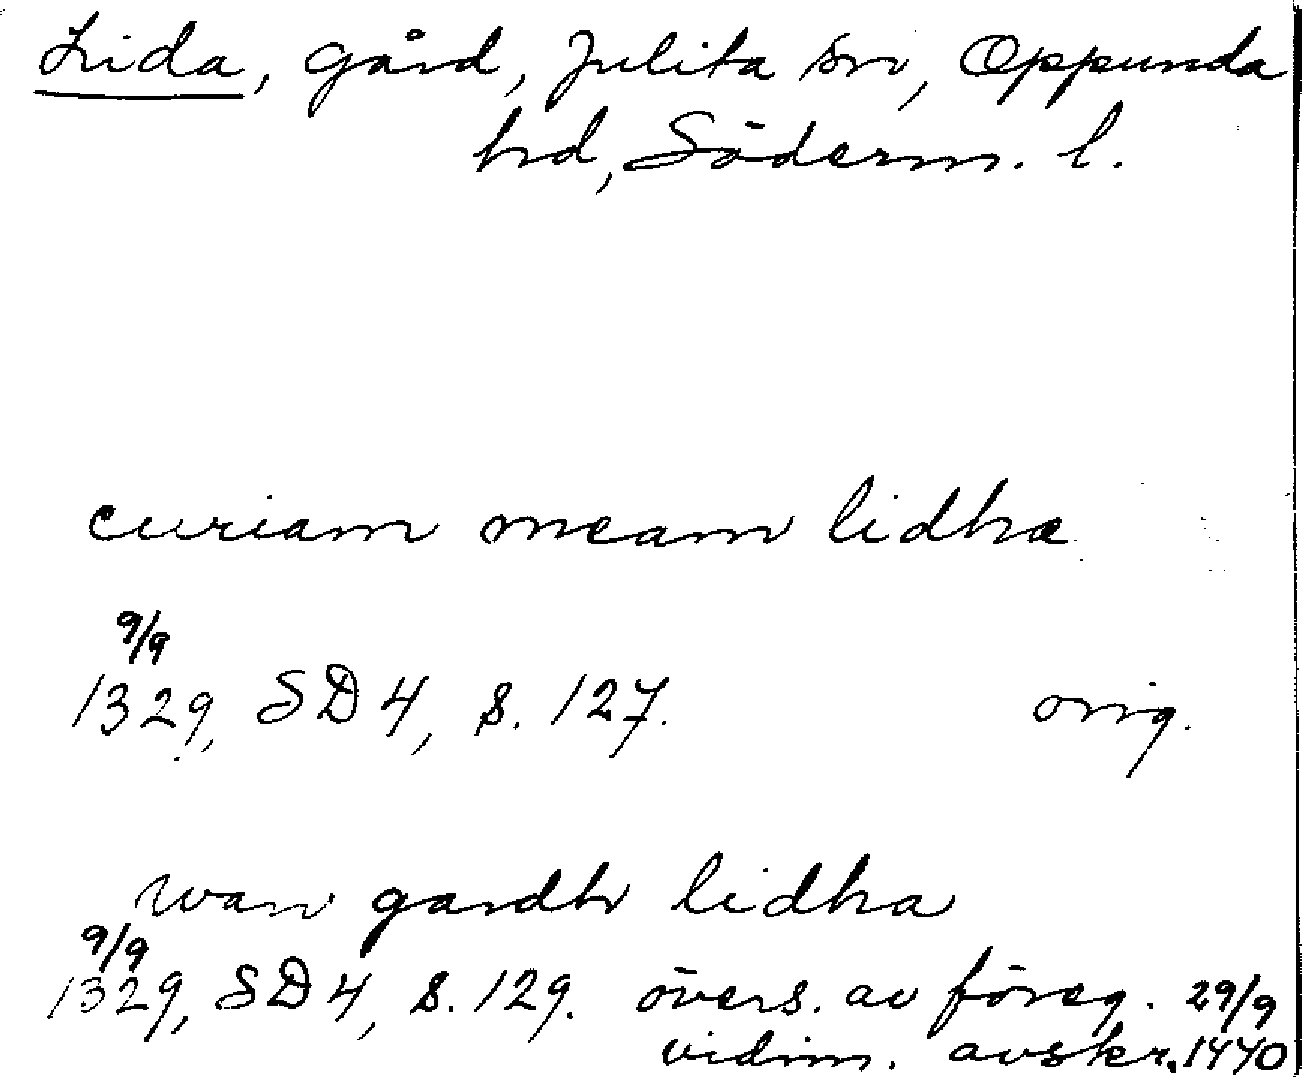 Lida, gård, Julita sn, Oppunda
hd, Söderm. l.
curiam meam lidhæ
9/9
1329, SD 4, s. 127. orig.
wan gardh lidha
9/9
1329, SD 4, s. 129. övers. av föreg. 29/9
vidim. avskr. 1440